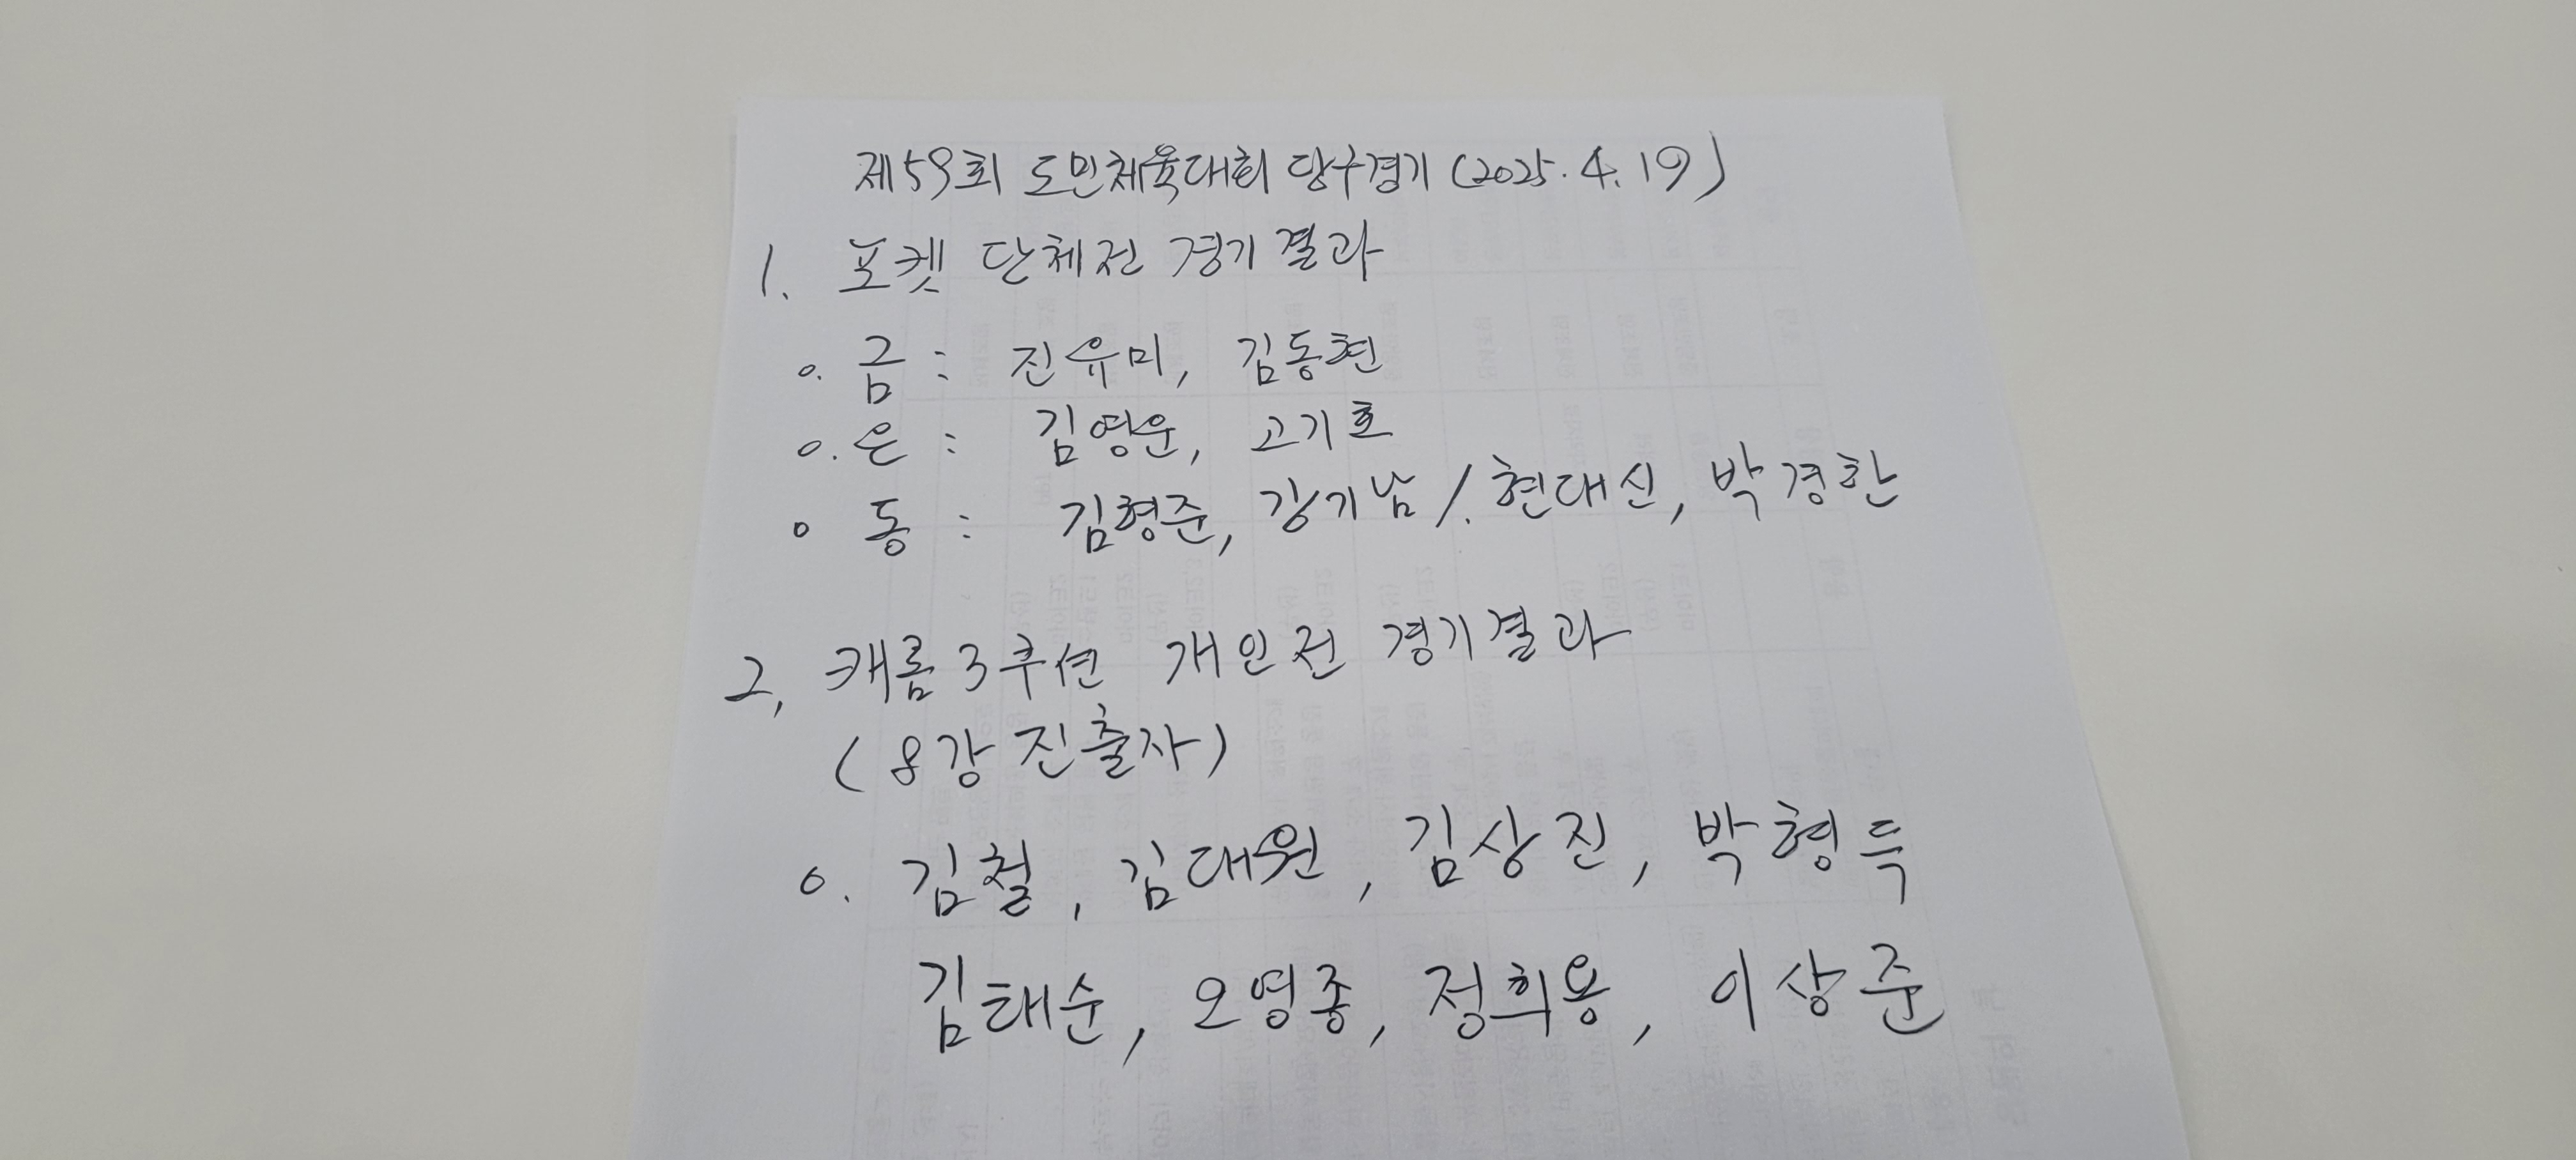 제59회 도민체육대회 당구경기 (2025. 4. 19)
1. 포켓 단체전 경기결과
o. 금 : 진유미, 김동현
o. 은 : 김영운, 고기호
o 동 : 김형준, 강기남 /. 현대신, 박경한
2, 캐롬 3쿠션 개인전 경기결과
(8강 진출자)
o. 김철, 김대원, 김상진, 박형득
김태순, 오영종, 정희용, 이상준